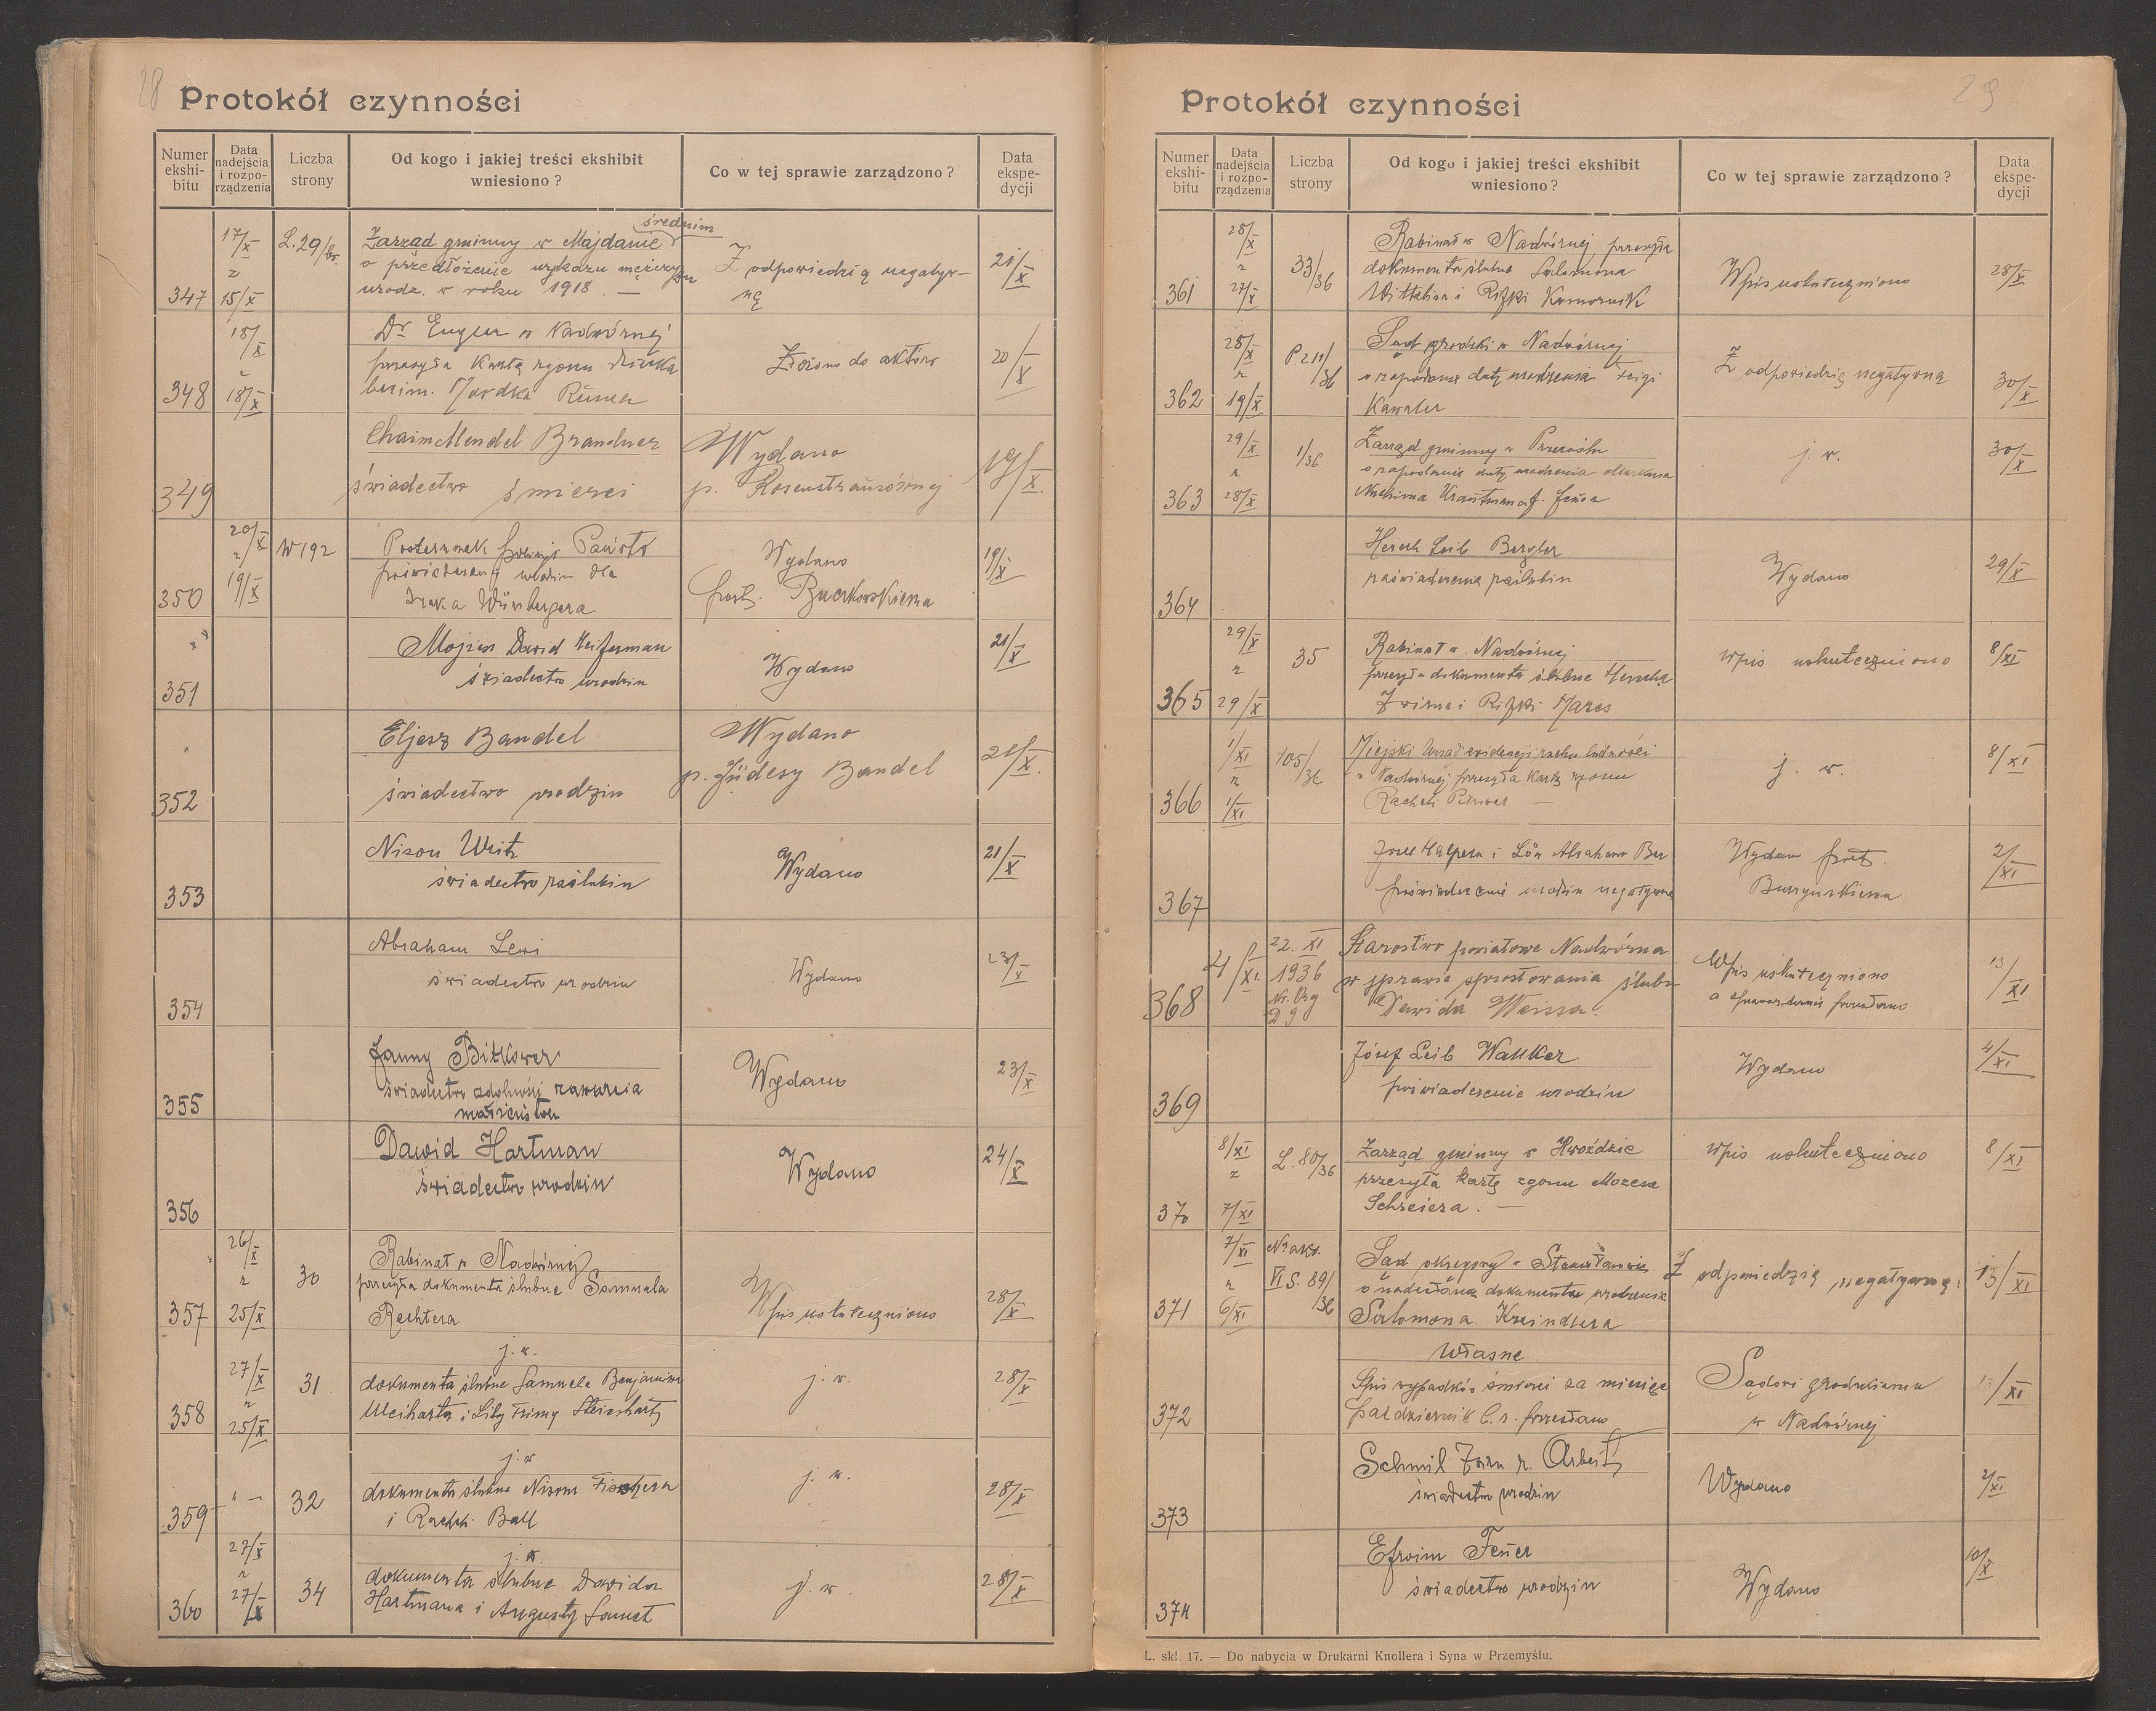 28
Protokół czynności
Numer ekshi- bitu
Data nadejścia i rozpo- rządzenia
Liczba strony
Od kogo i jakiej treści ekshibit wniesiono?
Co w tej sprawie zarządzono?
Data ekspe- dycji
347
17/X
z
15/X
L. 29/
Zarząd gminny w Majdanie
średnim
o przedłożenie wykazu mężczyzn
urodz. w roku 1918. —
Z odpowiedzią negatyw-
ną
21/X
348
18/X
z
18/X
Dr w Nadwórnej
przesyła kartę zgonu
Mordka
Złożono do aktów
20/X
349
Chaim Mendel Brandner
świadectwo śmierci
Wydano
p.
19/X.
350
20/X
z
19/X
W 192
Posterunek policji
urodzin dla
Wydano
19/X
351
Mojżesz Dawid
świadectwo urodzin
Wydano
21/X
352
Eljesz Bandel
świadectwo urodzin
Wydano
p. Jüdesy Bandel
21/X.
353
Nison
świadectwo zaślubin
Wydano
21/X
354
Abraham Lewi
świadectwo urodzin
Wydano
23/X
355
Fanny Bitkower
świadectwo zdolności zawarcia
małżeństwa
Wydano
23/X
356
Dawid Hartman
świadectwo urodzin
Wydano
24/X
357
26/X
z
25/X
30
Rabinat w Nadwórnej
przesyła dokumenta ślubne Samuela
Rechtera
Wpis uskuteczniono
28/X
358
27/X
z
25/X
31
j. w.
dokumenta ślubne Samuela Benjamina
j. w.
28/X
359
" —
32
j. w
dokumenta ślubne Nisona Fischera
i Racheli Ball
j. w.
28/X
360
27/X
z
27/X
34
j. w.
dokumenta ślubne Dawida
Hartmana i Augusty Samet
j. w.
28/X
29
Protokół czynności
Numer ekshi- bitu
Data nadejścia i rozpo- rządzenia
Liczba strony
Od kogo i jakiej treści ekshibit wniesiono?
Co w tej sprawie zarządzono?
Data ekspe- dycji
361
28/X
z
27/X
33/36
Rabinat w Nadwórnej przesyła
dokumenta ślubne Salamona
i Rifki
Wpis uskuteczniono
28/X
362
28/X
z
19/X
Sąd grodzki w Nadwórnej
o zapodanie daty urodzenia Feigi
Z odpowiedzią negatywną
30/X
363
29/X
z
28/X
1/36
Zarząd gminny w Przerośli
o zapodanie daty urodzenia
j. w.
30/X
364
Hersch Leib Bergler
zaświadczenia zaślubin
Wydano
29/X
365
29/X
z
29/X
35
Rabinat w Nadwórnej
przesyła dokumenta ślubne Herscha
i Rifki
Wpis uskuteczniono
8/XI
366
1/XI
z
1/XI
105/36
Miejski Urząd ewidencji ruchu ludności
w Nadwórnej przesyła kartę zgonu
Racheli
j. w.
8/XI
367
Josel Halpern i Abraham Ber
poświadczenie urodzin negatywne
2/XI
368
4/XI.
22. XI
1936
Starostwo powiatowe Nadwórna
w sprawie sprostowania ślubu
Dawida Weissa.
Wpis uskuteczniono
a sprawozdanie przesłano
13/XI
369
Józef Leib Walker
poświadczenie urodzin
Wydano
4/XI
370
8/XI
z
7/XI
L. 80/36
Zarząd gminny w Hwoździe
przesyła kartę zgonu Mozesa
Schreiera. —
Wpis uskuteczniono
8/XI
371
7/XI
z
6/XI
Nr akt.
VI S. 89/36
Sąd okręgowy w Stanisławowie
o nadesłanie dokumentu urodzenia
Salomona Kreindlera
Z odpowiedzią negatywną.
13/XI
372
Własne
Spis wypadków śmierci za miesiąc
październik b. r. przesłano
Sądowi grodzkiemu
w Nadwórnej
/XI
373
Schmil
świadectwo urodzin
Wydano
374
Efroim Feuer
świadectwo urodzin
Wydano
10/X
L. skł. 17. — Do nabycia w Drukarni Knollera i Syna w Przemyślu.